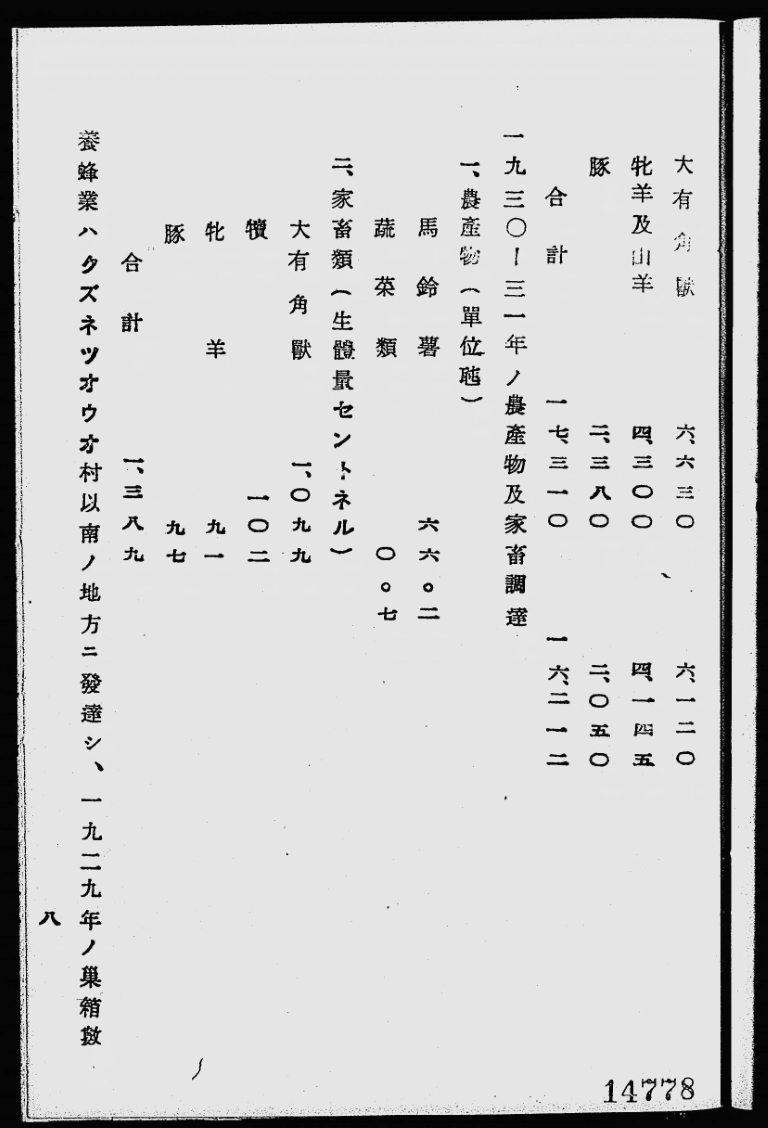 大有角獸 六、六三〇 六、一二〇
牝羊及山羊 四、三〇〇 四、一四五
豚 二、三八〇 二、〇五〇
合計 一七、三一〇 一六、二一二
一九三〇ー三一年ノ農產物及家畜調達
一、農產物(單位瓲)
馬鈴薯 六六。二
蔬菜類 〇。七
二、家畜類(生體量セントネル)
大有角獸 一、〇九九
犢 一〇二
牝羊 九一
豚 九七
合計 一、三八九
養蜂業ハクズネツオウオ村以南ノ地方ニ發達シ、一九二九年ノ巢箱數
八
14778